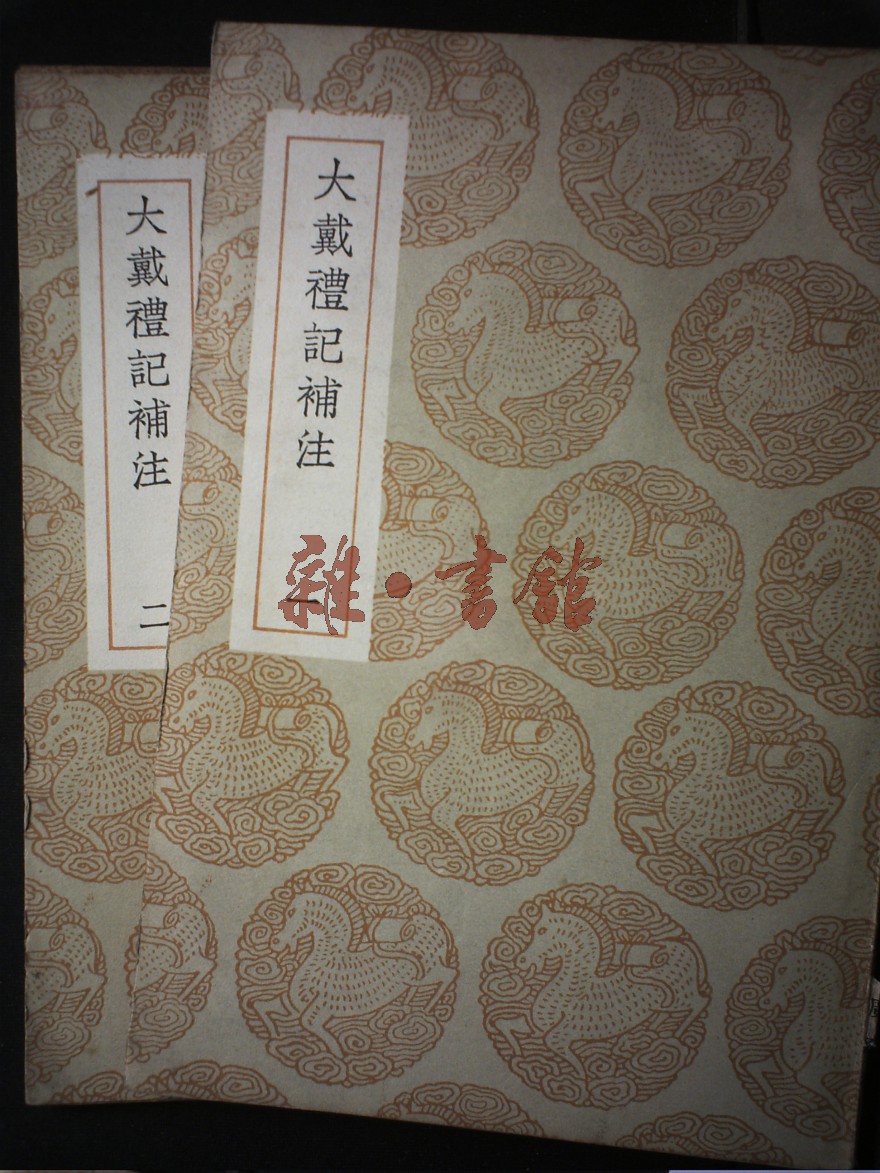 大戴禮記補注
一
大戴禮記補注
二
雜·書館